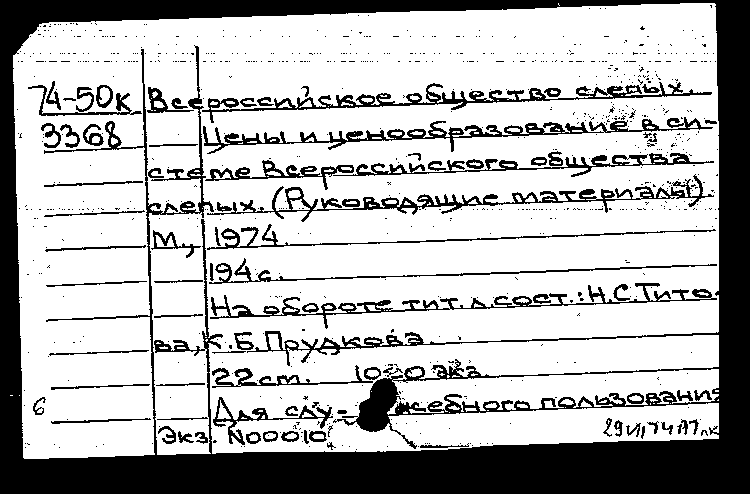 74-50к Всероссийское общество слепых.
3368 Цены и ценообразование в си-
стеме Всероссийского общества
слепых. (Руководящие материалы).
М., 1974.
194 с.
На обороте тит. л. сост.: Н.С. Тито-
ва, К.Б. Прудкова.
22 см. экз.
6 Для слу- жебного пользования
Экз. N00010